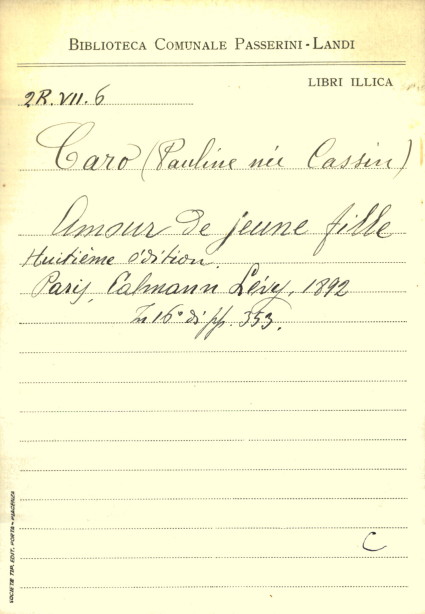 BIBLIOTECA COMUNALE PASSERINI-LANDI
LIBRI ILLICA
2R.VII.6
Caro (Pauline née Cassin)
Amour de jeune fille
Huitième édition.
Paris, Calmann Lévy, 1892
In 16° di pp. 353.
C
SOCIETÀ TIP. EDIT. PORTA - PIACENZA